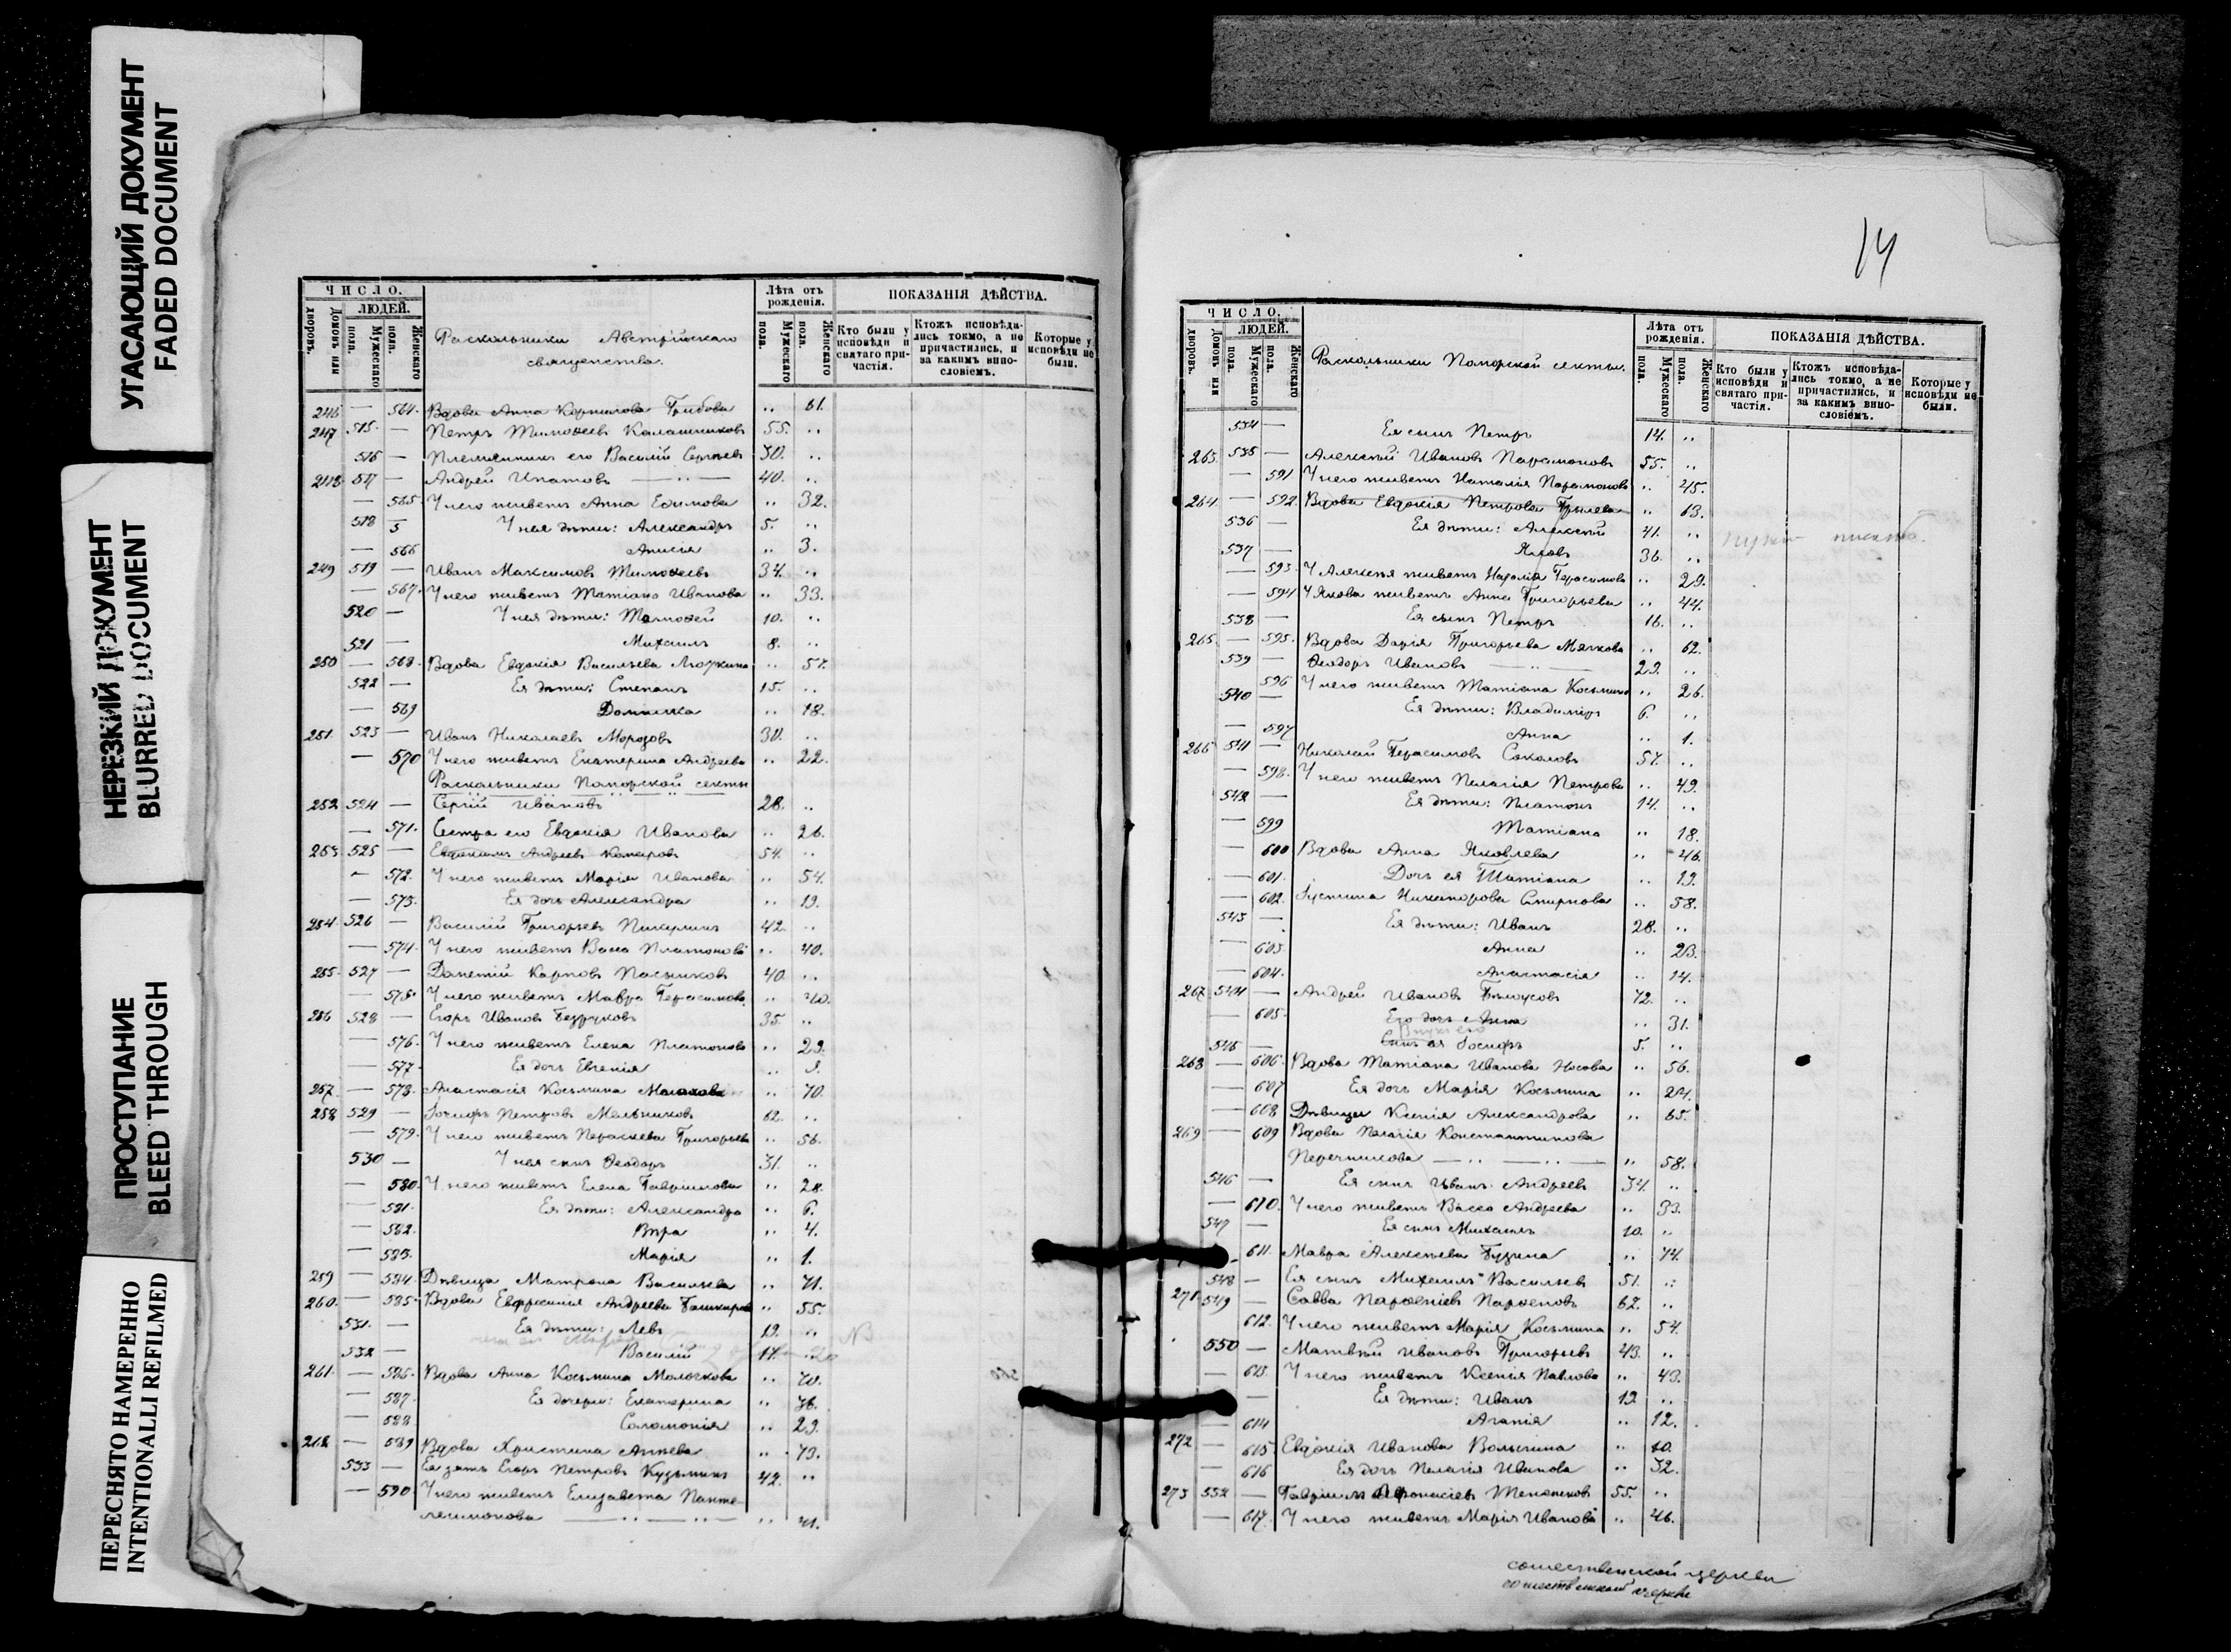 УГАСАЮЩИЙ ДОКУМЕНТ
FADED DOCUMENT
НЕРЕЗКИЙ ДОКУМЕНТ
BLURRED DOCUMENT
ПРОСТУПАНИЕ
BLEED THROUGH
ПЕРЕСНЯТО НАМЕРЕННО
INTENTIONALLI REFILMED
ЧИСЛО.
ЛЮДЕЙ.
Домовъ или дворовъ.
Мужескаго пола.
Женскаго пола.
Раскольники Австрійскаго
священства.
Лѣта отъ рожденія.
Мужескаго пола.
Женскаго пола.
ПОКАЗАНІЯ ДѢЙСТВА.
Кто были у исповѣди и святаго причастія.
Ктожъ исповѣдались токмо, а не причастились, и за какимъ винословіемъ.
Которые у исповѣди не были.
246 — 564. Вдова Анна Корнилова Грибова .. 61.
247 515. — Петръ Тимоѳеевъ Калашниковъ 55. ..
516 — Племянникъ его Василій Сергѣевъ 30. ..
248 517 — Андрей Ипатовъ — .. — 40. ..
— 565 У него живетъ Анна Ефимова .. 32.
518 5 У нея дѣти: Александръ 5. ..
— 566 Анисія .. 3.
249 519 — Иванъ Максимовъ Тимоѳеевъ 34. ..
— 567. У него живетъ Татіана Иванова .. 33.
520 — У нея дѣти: Тимоѳей 10. ..
521 — Михаилъ 8. ..
250 — 568. Вдова Евдокія Васильева .. 57.
522 — Ея дѣти: Степанъ 15. ..
— 569 Домника .. 18.
251. 523 — Иванъ Николаевъ Морозовъ 30. ..
— 570 У него живетъ Екатерина Андреева .. 22.
Раскольники Поморской секты
252 524 — Сергій Ивановъ 28. ..
— 571. Сестра его Евдокія Иванова .. 26.
253 525 — Евдокимъ Андреевъ 54. ..
— 572. У него живетъ Марія Иванова .. 54.
— 573. Ея дочь Александра .. 19.
254 526 — Василій Григорьевъ Пикулинъ 42. ..
— 574. У него живетъ Васса Платонова .. 40.
255 527 — Карповъ 40. ..
— 575. У него живетъ Мавра Герасимова .. 40.
256 528 — Егоръ Ивановъ Безруковъ 35. ..
— 576. У него живетъ Елена Платонова .. 29.
— 577 Ея дочь Евгенія ..
257. — 578. Анастасія Косьмина .. 70.
258 529 — Іосифъ Петровъ Мельниковъ 62. ..
— 579. У него живетъ Параскева Григорьева .. 56.
530 — У нея сынъ Ѳеодоръ 31. ..
— 580. У него живетъ Елена Гавріилова .. 28.
— 581. Ея дѣти: Александра .. 6.
— 582. Вѣра .. 4.
— 583. Марія .. 1.
259 — 584. Дѣвица Матрона Васильева .. 71.
260. — 585. Вдова Евфросинія Андреева Башкирова .. 55.
531. — Ея дѣти: Левъ 19. ..
532 — Василій 17.
261. — 586. Вдова Анна Косьмина Молочкова .. 70.
— 587. Ея дочери: Екатерина .. 36.
— 588 Соломонія .. 29.
262 — 589 Вдова Христина .. 73.
533 — Ея зять Егоръ Петровъ Кузьминъ 42. ..
— 590 У него живетъ Елизавета Панте-
леимонова — .. — .. — .. 41.
14
ЧИСЛО.
ЛЮДЕЙ.
Домовъ или дворовъ.
Мужескаго пола.
Женскаго пола.
Раскольники Поморской секты.
Лѣта отъ рожденія.
Мужескаго пола.
Женскаго пола.
ПОКАЗАНІЯ ДѢЙСТВА.
Кто были у исповѣди и святаго причастія.
Ктожъ исповѣдались токмо, а не причастились, и за какимъ винословіемъ.
Которые у исповѣди не были.
534 — Ея сынъ Петръ 14. ..
263. 535 — Алексѣй Ивановъ Парамоновъ 55. ..
— 591 У него живетъ Наталія Парамонова .. 45.
264. — 592. Вдова Евдокія Петрова .. 63.
536 — Ея дѣти: Алексѣй 41. ..
537 — Яковъ 36. ..
— 593. У Алексѣя живетъ Наталія Герасимова .. 29.
— 594 У Якова живетъ Анна Григорьева .. 44.
538 — Ея сынъ Петръ 16. ..
265. — 595. Вдова Дарія Григорьева Мягкова .. 62.
539 — Ѳеодоръ Ивановъ — .. — 29. ..
— 596 У него живетъ Татіана Косьмина .. 26.
540 — Ея дѣти: Владиміръ 6. ..
— 597 Анна .. 1.
266 541 — Николай Герасимовъ Соколовъ 57. ..
— 598. У него живетъ Пелагія Петрова .. 49.
542 — Ея дѣти: Платонъ 14. ..
— 599 Татіана .. 18.
— 600 Вдова Анна Яковлева .. 46.
— 601. Дочь ея Татіана .. 19.
— 602. Іустина Никанорова Смирнова .. 58.
543 — Ея дѣти: Иванъ 28. ..
— 603. Анна .. 23.
— 604. Анастасія .. 14.
267 544 — Андрей Ивановъ Бѣлоусовъ 72. ..
— 605. Его дочь Анна .. 31.
Внукъ его
545 — Сынъ ея Іосифъ 5. ..
268 — 606. Вдова Татіана Иванова Носова .. 56.
— 607 Ея дочь Марія Косьмина .. 24.
— 608 Дѣвица Ксенія Александрова .. 65.
269 — 609 Вдова Пелагія Константинова
Перечникова — .. — .. — .. 58.
546 — Ея сынъ Иванъ Андреевъ 34. ..
— 610. У него живетъ Васса Андреева .. 33.
547 — Ея сынъ Михаилъ 10. ..
611. Мавра Алексѣева Бузина .. 74.
548 — Ея сынъ Михаилъ Васильевъ 51. ..
271 549 — Савва Парѳеніевъ Парѳеновъ 62. ..
612. У него живетъ Марія Косьмина .. 54.
550 — Матвѣй Ивановъ Григорьевъ 43. ..
— 613. У него живетъ Ксенія Павлова .. 43.
— Ея дѣти: Иванъ 19 ..
— 614 Агапія .. 12.
272 — 615 Евдокія Иванова Волынина .. 60.
— 616 Ея дочь Пелагія Иванова .. 32.
273 552 — Гавріилъ Аѳанасіевъ 55. ..
— 617. У него живетъ Марія Иванова .. 46.
сошественской церкви
сошественской церкви